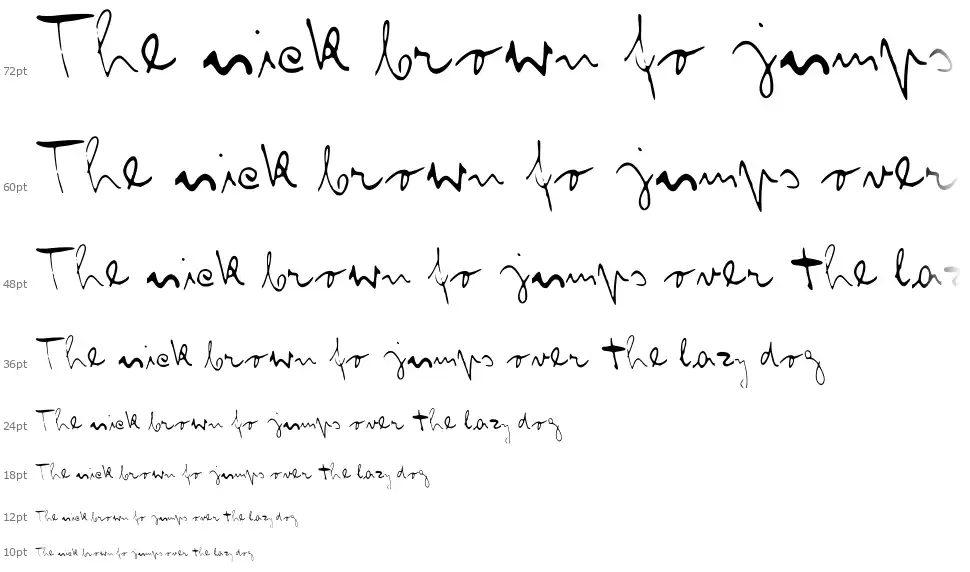 72pt The uick brown fo jumps
60pt The uick brown fo jumps over
48pt The uick brown fo jumps over the laz
36pt The uick brown fo jumps over the lazy dog
24pt The uick brown fo jumps over the lazy dog
18pt The uick brown fo jumps over the lazy dog
12pt The uick brown fo jumps over the lazy dog
10pt The uick brown fo jumps over the lazy dog